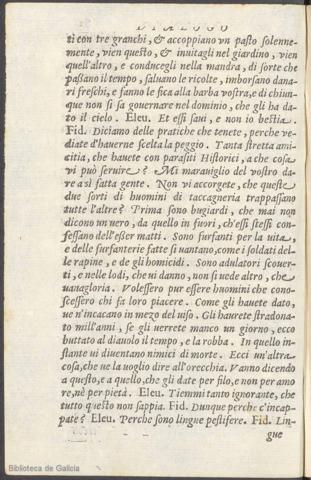 DIALOGO
ti con tre granchi, & accoppiano vn pasto solenne-
mente, vien questo, & inuitagli nel giardino, vien
quell'altro, e conducegli nella mandra, di sorte che
passano il tempo, saluano le ricolte, imborsano dana-
ri freschi, e fanno le fica alla barba vostra, e di chiun-
que non si sa gouernare nel dominio, che gli ha da-
to il cielo. Eleu. Et essi saui, e non io bestia.
Fid. Diciamo delle pratiche che tenete, perche ve-
diate d'hauerne scelta la peggio. Tanta stretta ami-
citia, che hauete con parasiti Historici, a che cosa
vi può seruire? Mi marauiglio del vostro da-
re a sì fatta gente. Non vi accorgete, che queste
due sorti di huomini di taccagneria trappassano
tutte l'altre? Prima sono bugiardi, che mai non
dicono un uero, da quello in fuori, ch'essi stessi con-
fessano dell'esser matti. Sono furfanti per la uita,
e delle furfanterie fatte si uantano, come i soldati del-
le rapine, e de gli homicidi. Sono adulatori scouer-
ti, e nelle lodi, che ui danno, non si uede altro, che
uanagloria. Volessero pur essere huomini che cono-
scessero chi fa loro piacere. Come gli hauete dato,
ue n'incacano in mezo del uiso. Gli haurete stradona-
to mill'anni, se gli uerrete manco un giorno, ecco
buttato al diauolo il tempo, e la robba. In quello in-
stante ui diuentano nimici di morte. Ecci un'altra
cosa, che ue la uoglio dire all'orecchia. Vanno dicendo
a questo, e a quello, che gli date per filo, e non per amo
re, nè per pietà. Eleu. Tiemmi tanto ignorante, che
tutto questo non sappia. Fid. Dunque perche c'incap-
pate? Eleu. Perche sono lingue pestifere. Fid. Lin-
gue
Biblioteca de Galicia